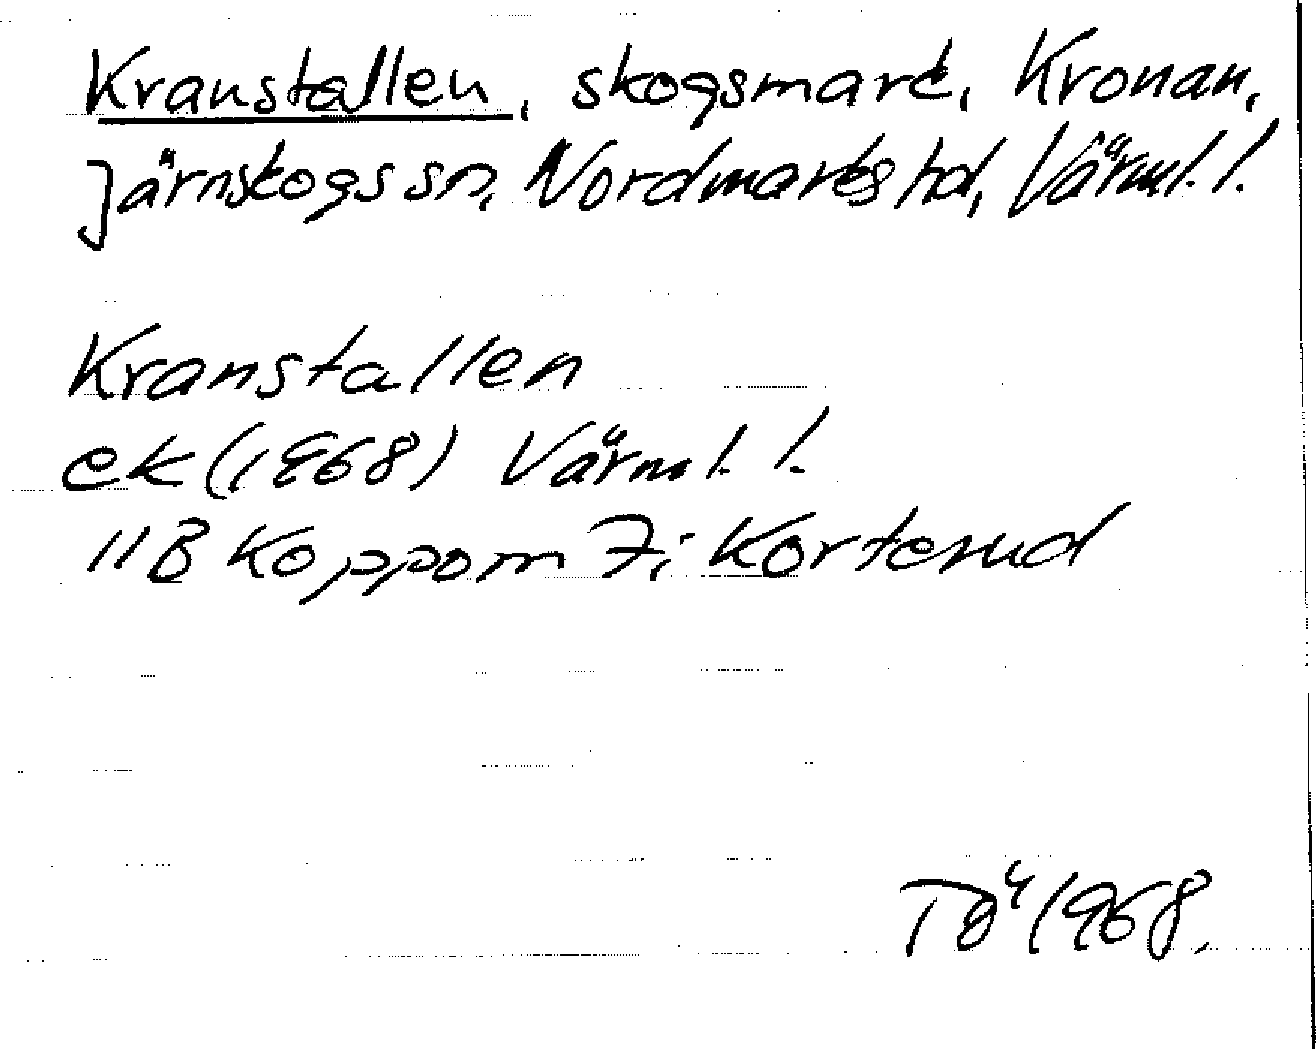 Kranstallen, skogsmark, Kronan,
Järnskogs sn, Nordmarks hd, Värml. l.
Kranstallen
ek (1968) Värml. l.
11B Koppom 7i Korterud
1968.